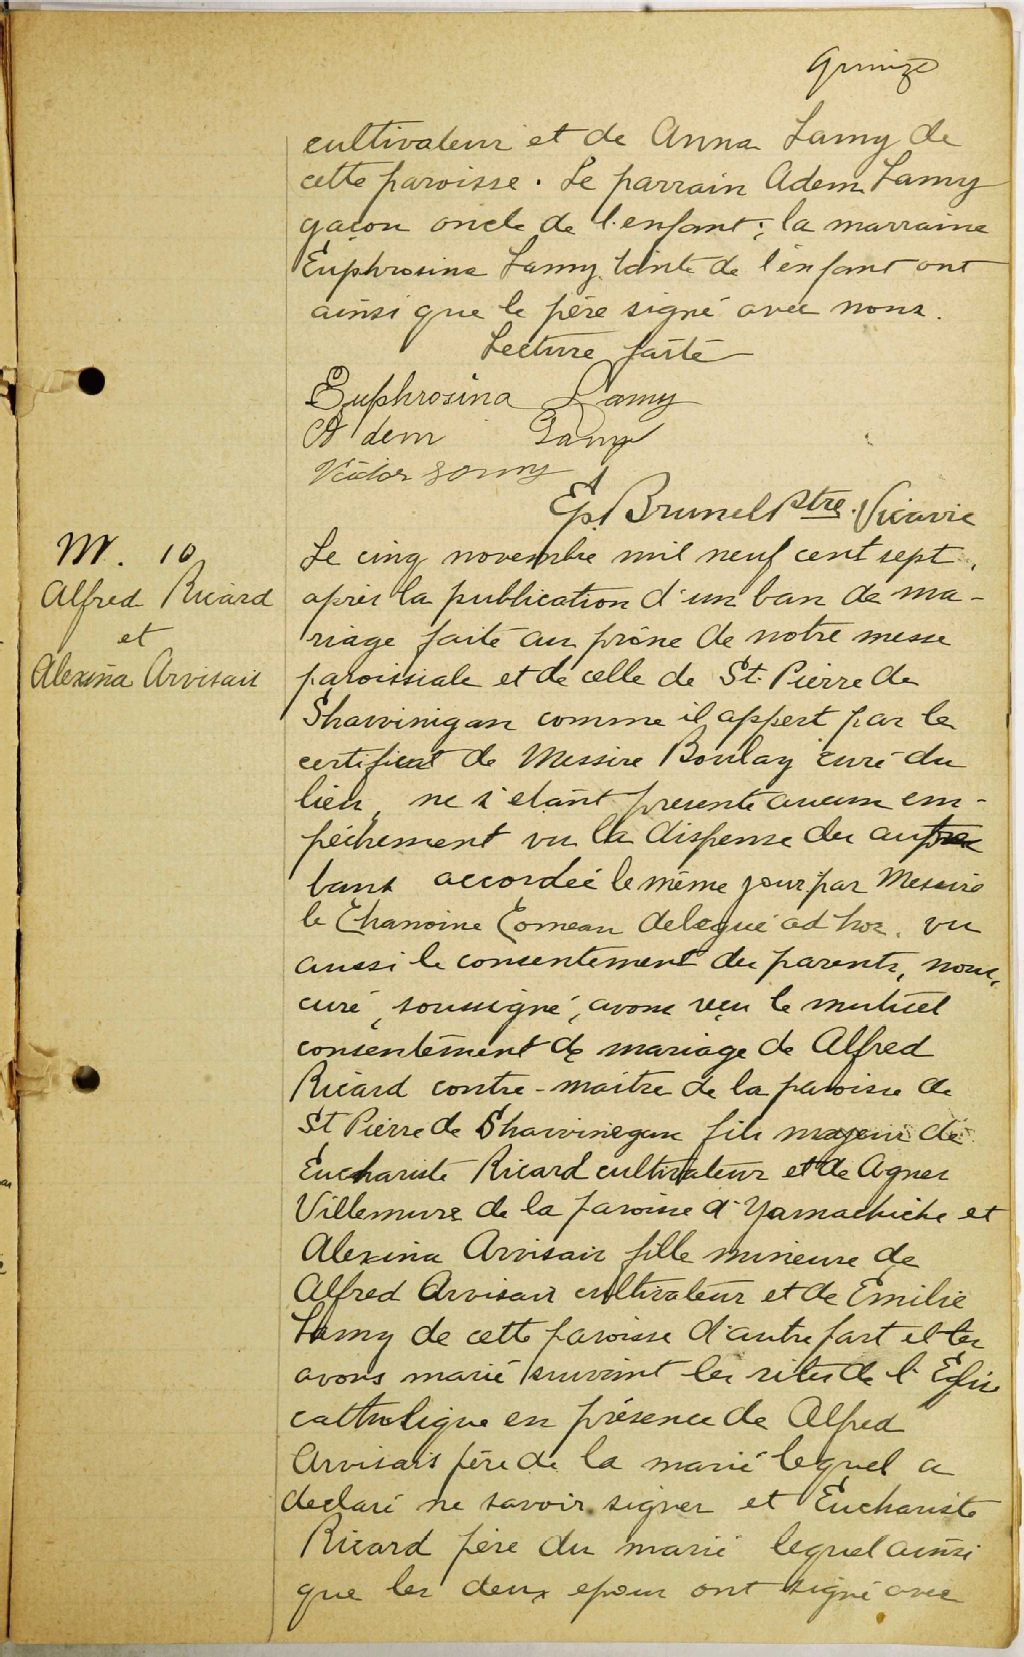 quinze
cultivateur et de Anna Lamy de
cette paroisse. Le parrain Adem Lamy
gaçon oncle de l'enfant; la marraine
Euphrosina Lamy tante de l'enfant ont
ainsi que le père signé avec nous.
Lecture faite
Euphrosina Lamy
Adem Lamy
Victor Lamy
Ep. Brunel Ptre. Vicaire
M. 10
Alfred Ricard
et
Alexina Arvisais
Le cinq novembre mil neuf cent sept,
après la publication d'un ban de ma-
riage faite au prône de notre messe
paroissiale et de celle de St. Pierre de
Shawinigan comme il appert par le
certificat de Messire Boulay curé du
lieu, ne s'etant presenté aucun em-
pêchement vu la dispense des autres
bans accordée le même jour par Messire
le Chanoine Comeau delegué ad hoc. vu
aussi le consentement des parents, nous,
curé, soussigné, avons reçu le mutuel
consentement de mariage de Alfred
Ricard contre-maitre de la paroisse de
St Pierre de Shawinegan fils majeur de
Euchariste Ricard cultivateur et de Agnes
Villemure de la paroisse d'Yamachiche et
Alexina Arvisais fille mineure de
Alfred Arvisais cultivateur et de Emilie
Lamy de cette paroisse d'autre part et les
avons marié suivant les rites de l'Eglise
catholique en présence de Alfred
Arvisais père de la marié lequel a
declaré ne savoir signer et Euchariste
Ricard père du marié lequel ainsi
que les deux epoux ont signé avec